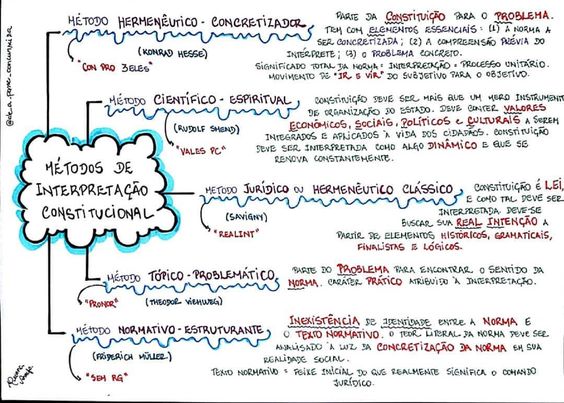 MÉTODOS DE
INTERPRETAÇÃO
CONSTITUCIONAL
MÉTODO HERMENÊUTICO-CONCRETIZADOR
(KONRAD HESSE)
"CON PRO 3ELES"
PARTE DA CONSTITUIÇÃO PARA O PROBLEMA.
TEM COM ELEMENTOS ESSENCIAIS: (1) A NORMA A
SER CONCRETIZADA; (2) A COMPREENSÃO PRÉVIA DO
INTÉRPRETE; (3) O PROBLEMA CONCRETO.
SIGNIFICADO TOTAL DA NORMA = INTERPRETAÇÃO = PROCESSO UNITÁRIO.
MOVIMENTO DE "IR E VIR" DO SUBJETIVO PARA O OBJETIVO.
MÉTODO CIENTÍFICO-ESPIRITUAL
(RUDOLF SMEND)
"VALES PC"
CONSTITUIÇÃO DEVE SER MAIS QUE UM MERO INSTRUMENTO
DE ORGANIZAÇÃO DO ESTADO. DEVE CONTER VALORES
ECONÔMICOS, SOCIAIS, POLÍTICOS E CULTURAIS A SEREM
INTEGRADOS E APLICADOS À VIDA DOS CIDADÃOS. CONSTITUIÇÃO
DEVE SER INTERPRETADA COMO ALGO DINÂMICO E QUE SE
RENOVA CONSTANTEMENTE.
MÉTODO JURÍDICO OU HERMENÊUTICO CLÁSSICO
(SAVIGNY)
"REALINT"
CONSTITUIÇÃO É LEI,
E COMO TAL DEVE SER
INTERPRETADA. DEVE-SE
BUSCAR SUA REAL INTENÇÃO A
PARTIR DE ELEMENTOS HISTÓRICOS, GRAMATICAIS,
FINALISTAS E LÓGICOS.
MÉTODO TÓPICO-PROBLEMÁTICO
(THEODOR VIEHWEG)
"PRONOR"
PARTE DO PROBLEMA PARA ENCONTRAR O SENTIDO DA
NORMA. CARÁTER PRÁTICO ATRIBUÍDO À INTERPRETAÇÃO.
MÉTODO NORMATIVO-ESTRUTURANTE
(FRIEDERICH MÜLLER)
"SEM RG"
INEXISTÊNCIA DE IDENTIDADE ENTRE A NORMA E
O TEXTO NORMATIVO. O TEOR LITERAL DA NORMA DEVE SER
ANALISADO À LUZ DA CONCRETIZAÇÃO DA NORMA EM SUA
REALIDADE SOCIAL.
TEXTO NORMATIVO = FEIXE INICIAL DO QUE REALMENTE SIGNIFICA O COMANDO
JURÍDICO.